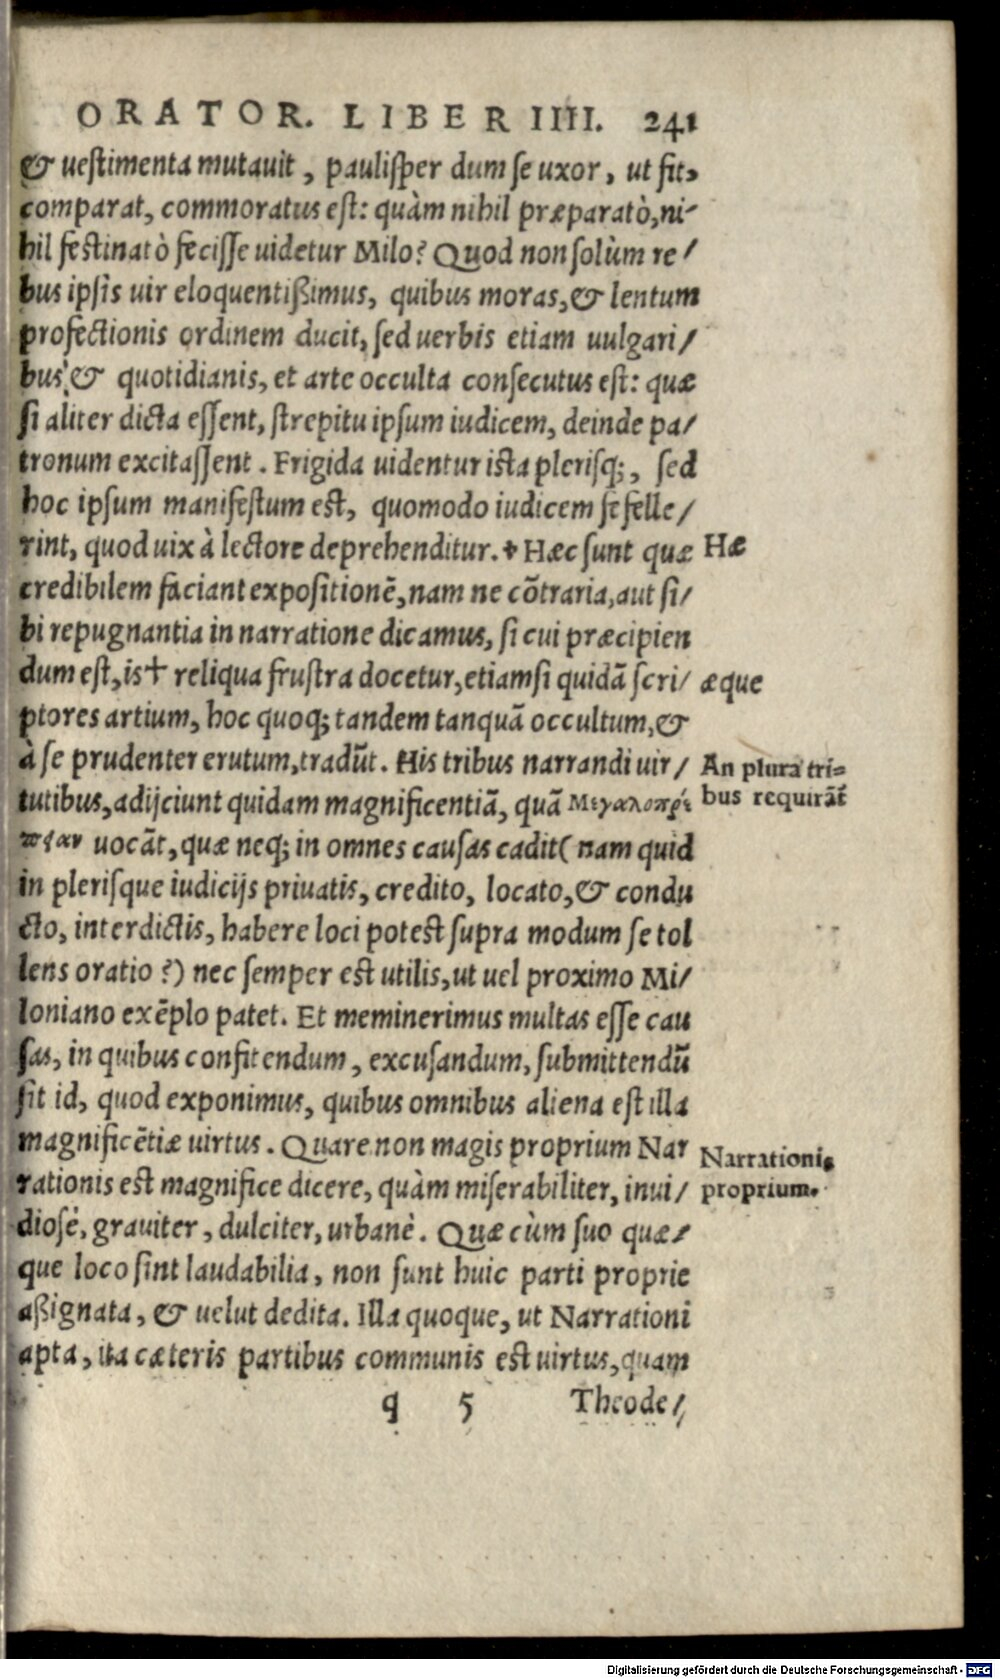 ORATOR. LIBER IIII. 241
& uestimenta mutauit, paulisper dum se uxor, ut fit,
comparat, commoratus est: quàm nihil præparatò, ni-
hil festinatò fecisse uidetur Milo? Quod non solùm re/
bus ipsis uir eloquentißimus, quibus moras, & lentum
profectionis ordinem ducit, sed uerbis etiam uulgari/
bus & quotidianis, et arte occulta consecutus est: quæ
si aliter dicta essent, strepitu ipsum iudicem, deinde pa/
tronum excitassent. Frigida uidentur ista plerisq;, sed
hoc ipsum manifestum est, quomodo iudicem fefelle/
rint, quod uix à lectore deprehenditur. + Hæc sunt quæ
Hæ
credibilem faciant expositionē, nam ne cōtraria, aut si/
bi repugnantia in narratione dicamus, si cui præcipien
dum est, is + reliqua frustra docetur, etiamsi quidā scri/
æque
ptores artium, hoc quoq; tandem tanquā occultum, &
à se prudenter erutum, tradūt. His tribus narrandi uir/
An plura tri=
tutibus, adijciunt quidam magnificentiā, quā Μεγαλοπρέ
bus requirāt
πειαν uocāt, quæ neq; in omnes causas cadit (nam quid
in plerisque iudicijs priuatis, credito, locato, & condu
cto, interdictis, habere loci potest supra modum se tol
lens oratio?) nec semper est utilis, ut uel proximo Mi/
loniano exēplo patet. Et meminerimus multas esse cau
sas, in quibus confitendum, excusandum, submittendū
sit id, quod exponimus, quibus omnibus aliena est illa
magnificētiæ uirtus. Quare non magis proprium Nar
Narrationis
rationis est magnifice dicere, quàm miserabiliter, inui/
proprium.
diosè, grauiter, dulciter, urbanè. Quæ cùm suo quæ/
que loco sint laudabilia, non sunt huic parti proprie
aßignata, & uelut dedita. Illa quoque, ut Narrationi
apta, ita cæteris partibus communis est uirtus, quam
q 5 Theode/
Digitalisierung gefördert durch die Deutsche Forschungsgemeinschaft - DFG